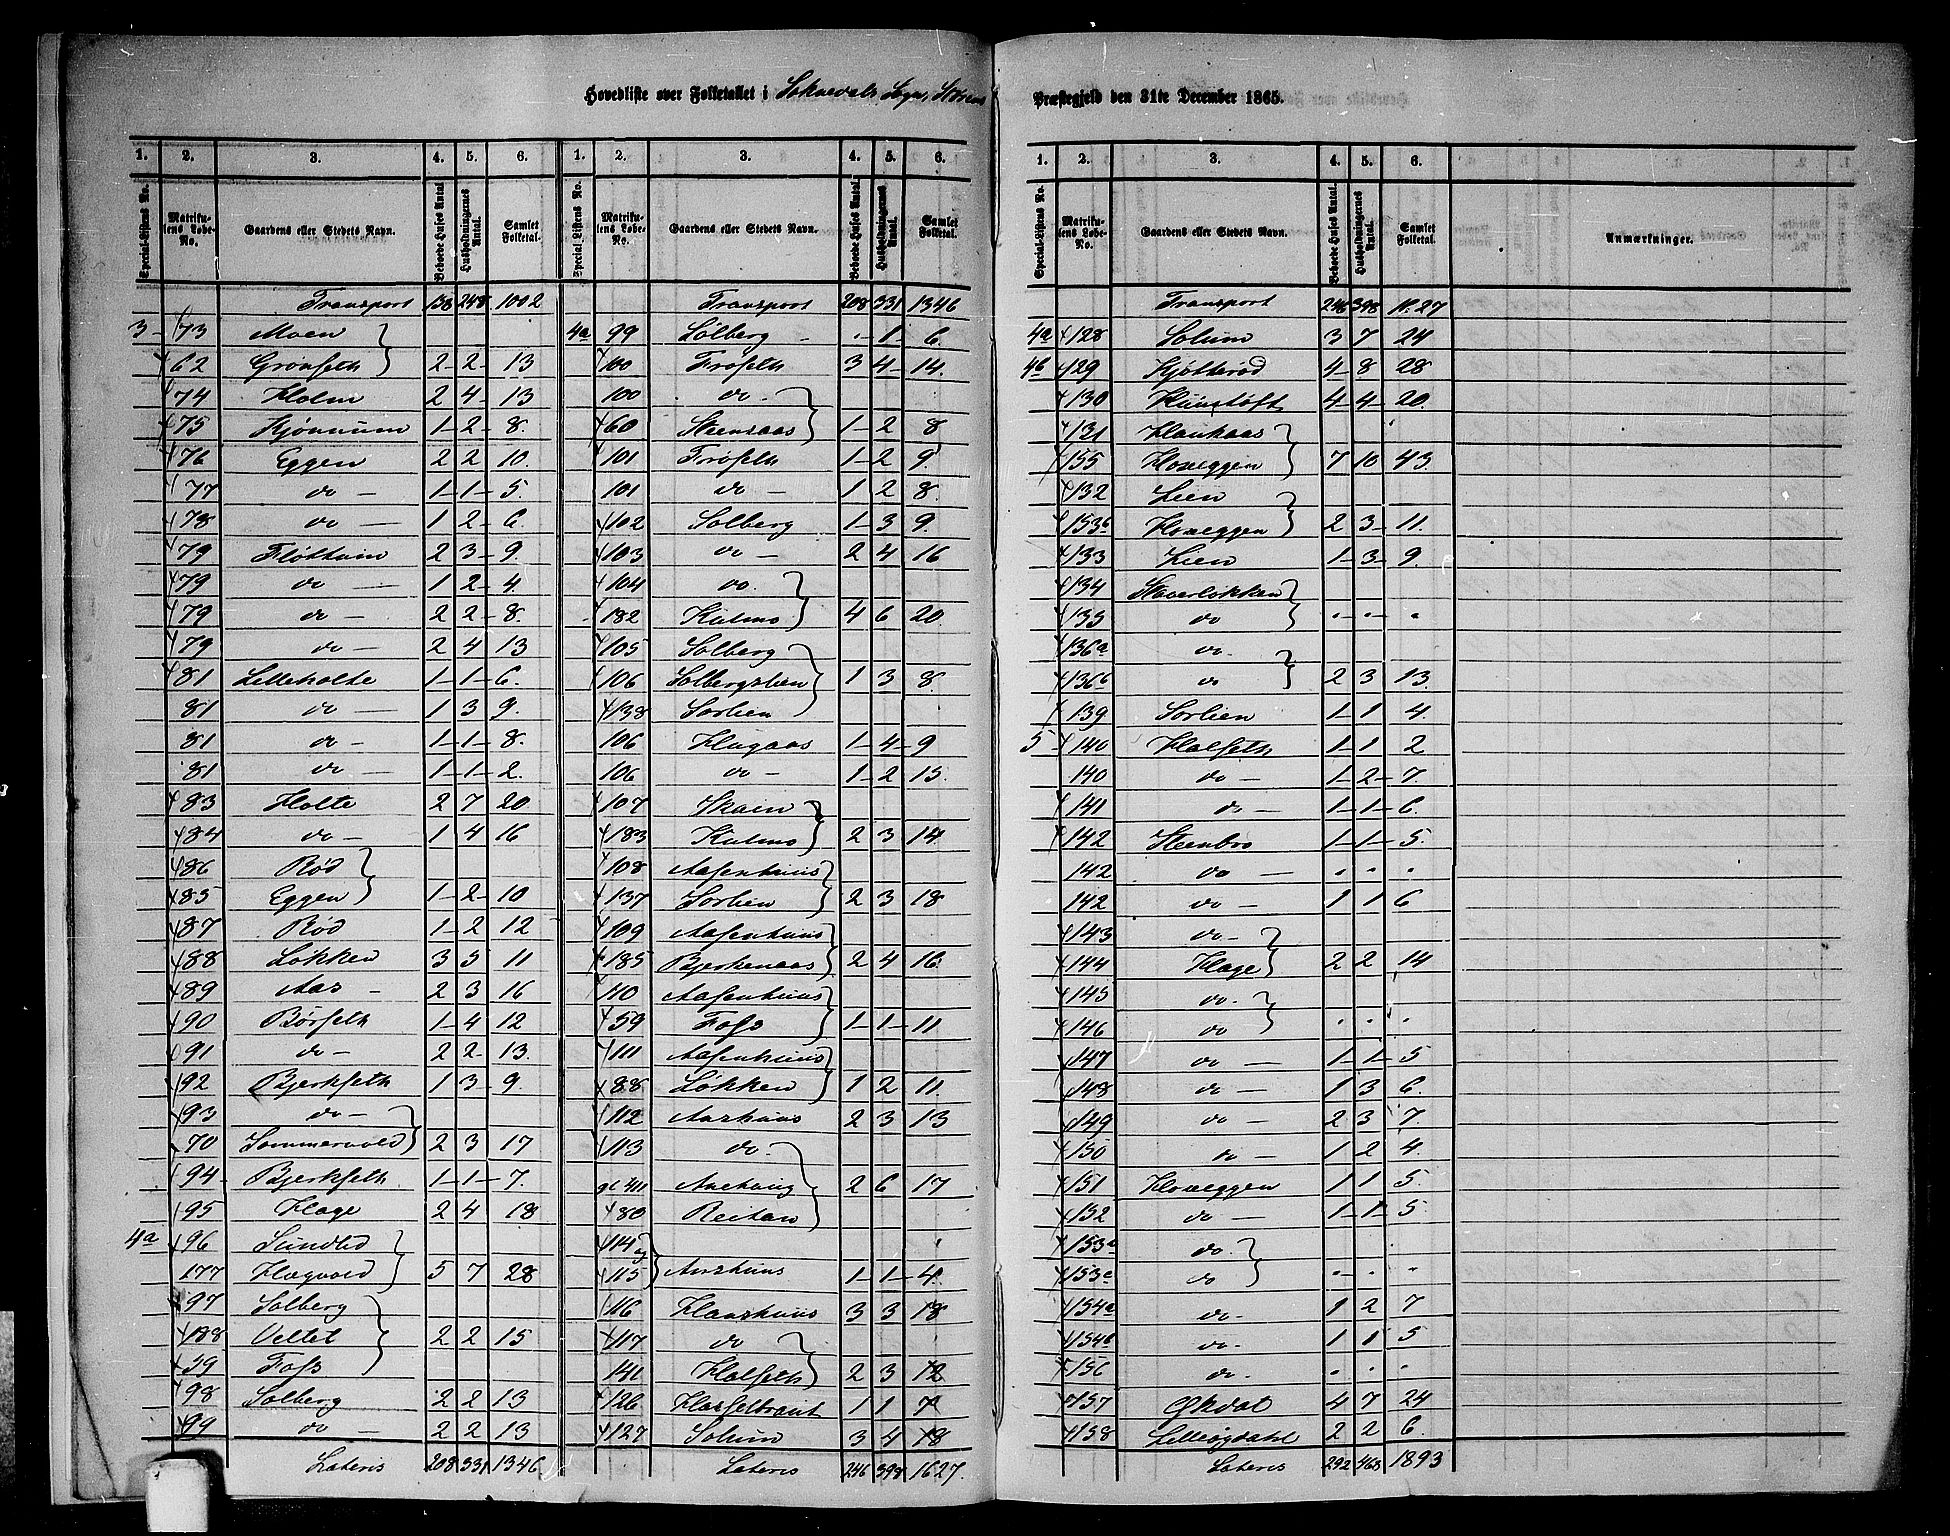 Hovedliste over Folketallet i Soknedals Sogn, Störens Præstegjeld den 31te December 1865.
1. 2. 3. 4. 5. 6.
Special-Listens No. Matrikulens Løbe-No. Gaardens eller Stedets Navn. Beboede Huses Antal. Husholdningernes Antal. Samlet Folketal.
Transport 158 248 1002
3 73 Moen
62 Grönseth 2 2 13
74 Holm 2 4 13
75 Kjönnum 1 2 8.
76 Eggen 2 2 10.
77 do 1 1 5.
78 do 1 2 6.
79 Flöttum 2 3 9.
79 do 1 2 4.
79 do 2 2 8.
79 do 2 4 13
81 Lilleholte 1 1 6.
81 do 1 3 9.
81 do 1 1 8.
81 do 1 1 2.
83 Holte 2 7 20
84 do 1 4 16
86 Röd
85 Eggen 1 2 10
87 Röd 1 2 12
88 Lökken 3 5 11
89 Aas 2 3 16
90 Börseth 1 4 12
91 do 2 2 13.
92 Bjerkseth 1 3 9.
93 do
70 Sommervold 2 3 17
94 Bjerkseth 1 1 7.
95 Hage 2 4 18
4a 96 Sundlid
177 Hægvold 5 7 28
97 Solberg
188 Veltet 2 2 15
59 Foss
98 Solberg 2 2 13
99 do 2 2 13
Lateris 208 331 1346
1. 2. 3. 4. 5. 6.
Special Listens No. Matrikulens Løbe-No. Gaardens eller Stedets Navn. Beboede Huses Antal. Husholdningernes Antal. Samlet Folketal.
Transport 208 331 1346
4a 99 Solberg - 1 6.
100 Fröseth 3 4 14.
100 do
60 Steensaas 1 2 8
101 Fröseth 1 2 9.
101 do 1 2 8.
102 Solberg 1 3 9.
103 do 2 4 16
104 do
182 Kulmo 4 6 20.
105 Solberg
106 Solbergslien 1 3 8.
138 Sorlien
106 Haugaas 1 4 9
106 do 1 2 15.
107 Skoien
183 Kulmo 2 3 14
108 Aasenhuus
137 Sorlien 2 3 18
109 Aasenhuus
185 Bjerkenaas 2 4 16
110 Aasenhuus
59 Foss 1 1 11
111 Aasenhuus
88 Lökken 1 2 11.
112 Aashuus 2 3 13
113 do
411 Auehaug 2 6 17
80 Reitan
114 og
115 Aashuus 1 1 4.
116 Haarhuus 3 3 18
117 do
141 Halseth 2 3 12
126 Hasseltrant 1 1 7
127 Solum 3 4 18
Lateris 246 398 1627.
1. 2. 3. 4. 5. 6.
Special-Listens No. Matrikulens Løbe-No. Gaardens eller Stedets Navn. Beboede Huses Antal. Husholdningernes Antal. Samlet Folketal. Anmærkninger.
Transport 246 398 1627
4a 128 Solum 3 7 24
4b 129 Kjötteröd 4 8 28
130 Kunstöft 4 4 20.
131 Haukaas
155 Hoveggen 7 10 43.
132 Lien
153b Hoveggen 2 3 11.
133 Lien 1 3 9.
134 Staverlökken
135 do
136a do
136b do 2 3 13.
139 Sorlien 1 1 4.
5 140 Halseth 1 1 2
140 do 1 2 7.
141 do 1 1 6.
142 Steenbro 1 1 5.
142 do
142 do 1 1 6
143 do
144 Hage 2 2 14
145 do
146 do
147 do 1 1 5
148 do 1 3 6.
149 do 2 3 7.
150 do 1 2 4.
151 Hoveggen 1 1 5.
152 do 1 1 5.
153a do
153c do
154a do 1 2 7
154b do 1 1 5
156 do
157 Ögdal 4 7 24
158 Lilleögdahl 2 2 6.
Lateris 292 463 1893